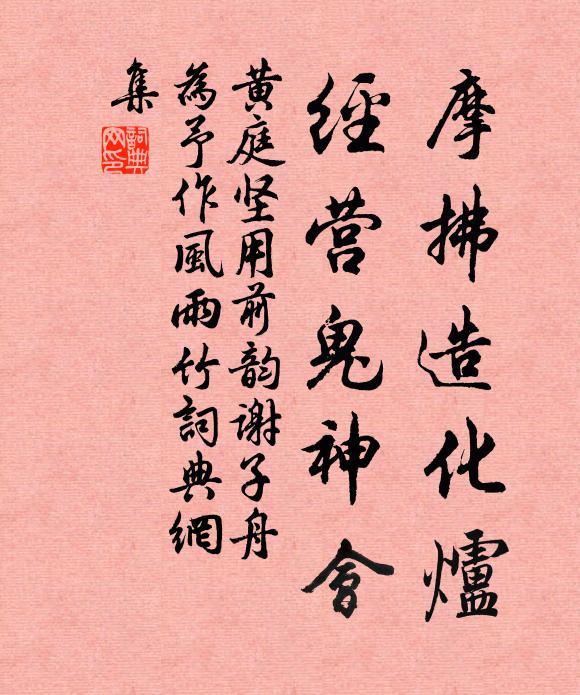 摩拂造化爐
經營鬼神會
黄庭坚用前韵謝子舟
為予作風雨竹詞典網
集
詞典網印